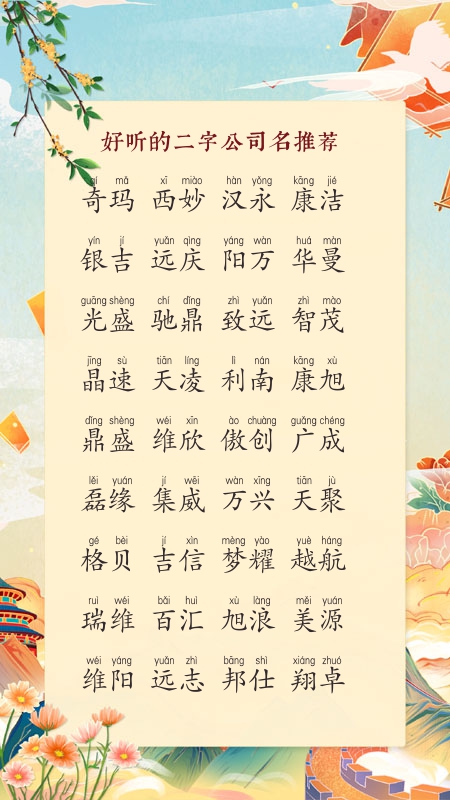 好听的二字公司名推荐
qí mǎ xī miào hàn yǒng kāng jié
奇玛 西妙 汉永 康洁
yín jí yuǎn qìng yáng wàn huá màn
银吉 远庆 阳万 华曼
guāng shèng chí dǐng zhì yuǎn zhì mào
光盛 驰鼎 致远 智茂
jīng sù tiān líng lì nán kāng xù
晶速 天凌 利南 康旭
dǐng shèng wéi xīn ào chuàng guǎng chéng
鼎盛 维欣 傲创 广成
lěi yuán jí wēi wàn xīng tiān jù
磊缘 集威 万兴 天聚
gé bèi jí xìn mèng yào yuè háng
格贝 吉信 梦耀 越航
ruì wéi bǎi huì xù làng měi yuán
瑞维 百汇 旭浪 美源
wéi yáng yuǎn zhì bāng shì xiáng zhuó
维阳 远志 邦仕 翔卓